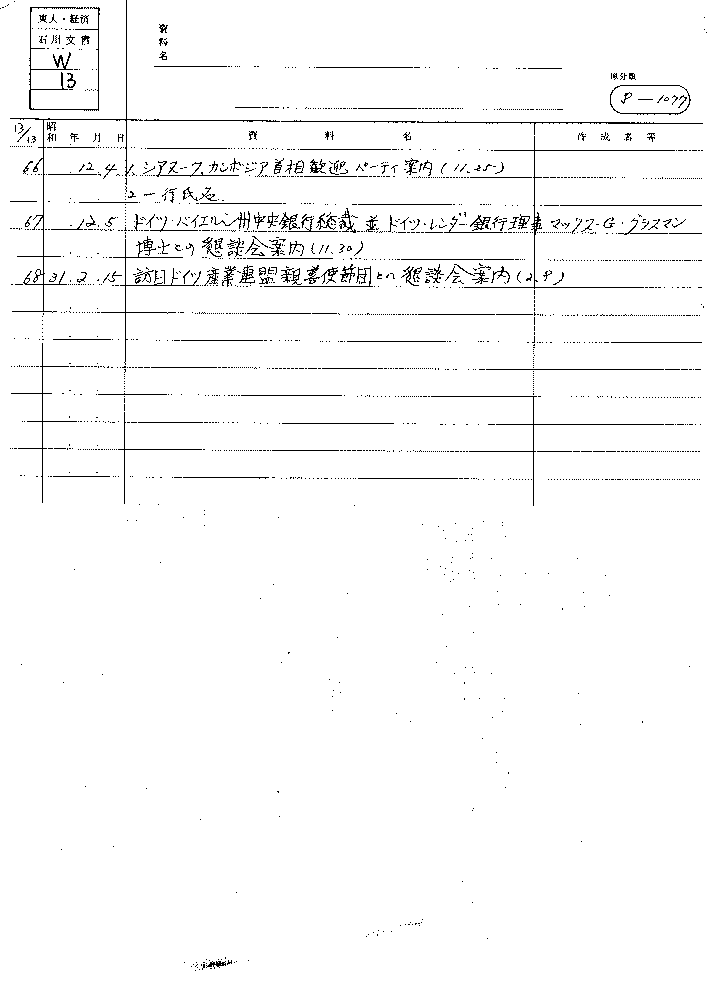 東大・経済
石川文書
W
13
資料名
原分類
P-1077
13/13 昭和 年 月 日 資 料 名 作成者等
66 . 12. 4 1. シアヌーク、カンボジア首相歓迎パーティ案内(11.25)
2 一行氏名
67 . 12. 5 ドイツ・バイエルン州中央銀行総裁並ドイツ・レンダー銀行理事マックス・G・グラスマン
博士との懇談会案内(11.30)
68 31. 2. 15 訪日ドイツ産業連盟親善使節団との懇談会案内(2.9)